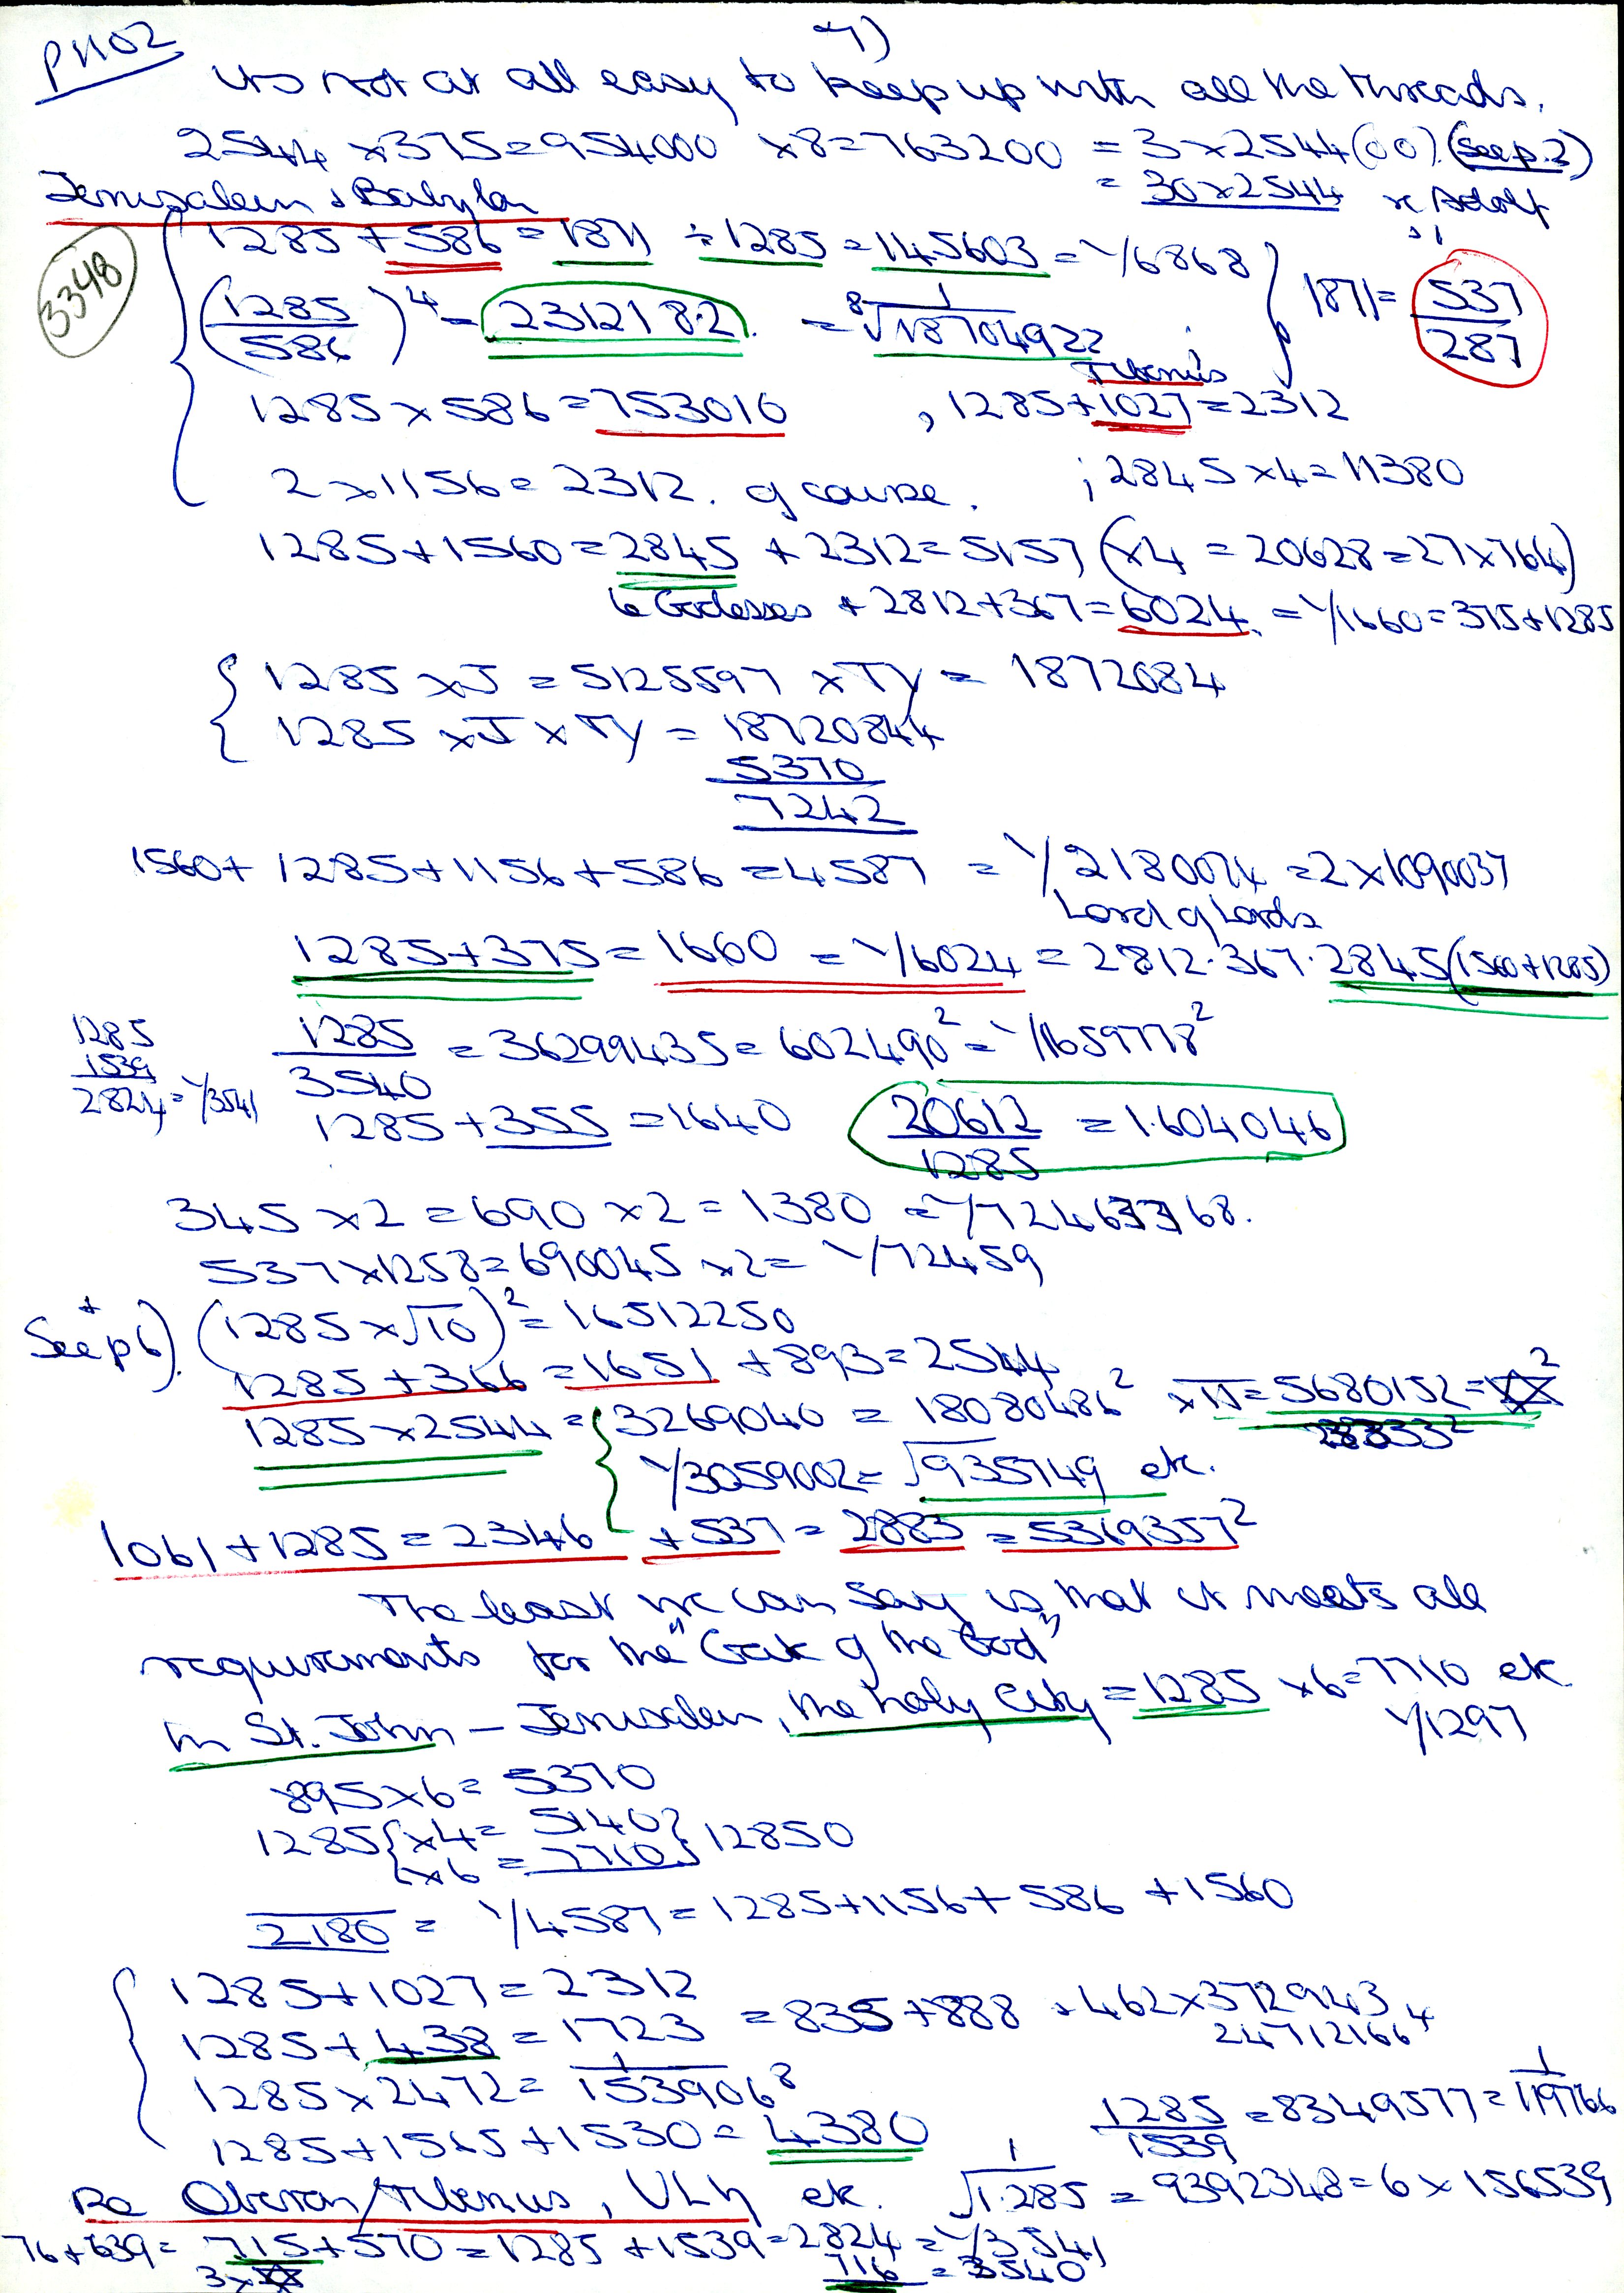 7)
P1102
Its not at all easy to keep up with all the threads.
2544 × 375 = 954000 × 8 = 763200 = 3 × 2544(00). (See p.2)
= 30 × 2544 × Adolf
Jerusalem & Babylon
1285 + 586 = 1871 ÷ 1285 = 145603 = 1/6868
3348
(1285/586)^4 = 231218.2. = 8√1/18704922
1871 = 537/287
Tiberius
1285 × 586 = 753010 , 1285 + 1027 = 2312
2 × 1156 = 2312. of course. ; 2845 × 4 = 11380
1285 + 1560 = 2845 + 2312 = 5157 (×4 = 20628 = 27 × 764)
6 Godesses + 2812 + 367 = 6024. = 1/1660 = 375 + 1285
1285 × J = 5125597 × TY = 1872084
1285 × J × TY = 18720844
5370
7242
1560 + 1285 + 1156 + 586 = 4587 = 1/2180074 = 2 × 1090037
Lord of Lords
1285 + 375 = 1660 = 1/6024 = 2812.367.2845 (1560+1285)
1285
1539
2824 = 1/3541
1285/3540 = 36299435 = 602490² = 1/1659778²
1285 + 355 = 1640
20612/1285 = 1.604046
345 × 2 = 690 × 2 = 1380 = 1/72463768.
537 × 1258 = 690045 × 2 = 1/72459
See p 6). (1285 × √10)² = 16512250
1285 + 366 = 1651 + 893 = 2544
1285 × 2544 = 3269040 = 18080486² × π = 5680152 =
1/3059002 = √935749 etc.
1061 + 1285 = 2346 + 537 = 2883 = 5369357²
The least we can say is, that it meets all
requirements for the "Gate of the God"
In St. John – Jerusalem, the holy City = 1285 × 6 = 7710 etc
1/1297
895 × 6 = 5370
1285 { ×4 = 5140 } 12850
×6 = 7710
2180 = 1/4587 = 1285 + 1156 + 586 + 1560
1285 + 1027 = 2312
1285 + 438 = 1723 = 835 + 888 . 462 × 3729434
24712166
1285 × 2472 = 1/1539068
1285 + 1565 + 1530 = 4380
1285/1539 = 8349577 = 1/119766
Re Oberon/Tiberius, ULLY etc. 1/√1.285 = 9392348 = 6 × 156539
76 + 639 = 715 + 570 = 1285 + 1539 = 2824 = 1/3541
716 = 3540